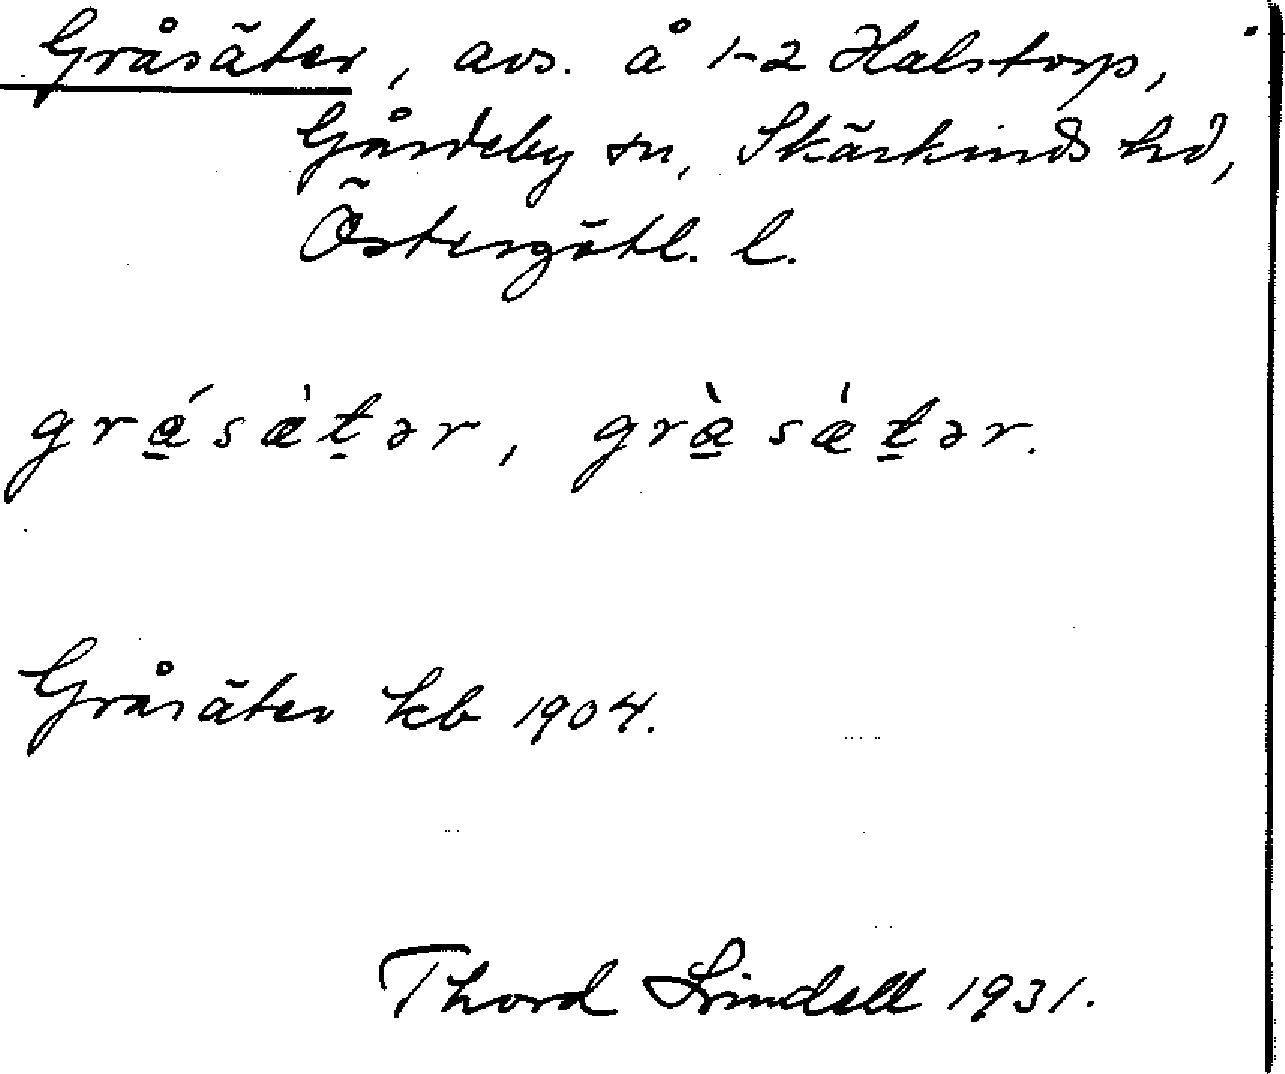 Gråsäter, avs. å 1-2 Halstorp,
Gårdeby sn, Skärkinds hd,
Östergötl. l.
grá̱sæ̀ṯər, grà̱sæ̀ṯər.
Gråsäter kb 1904.
Thord Lindell 1931.